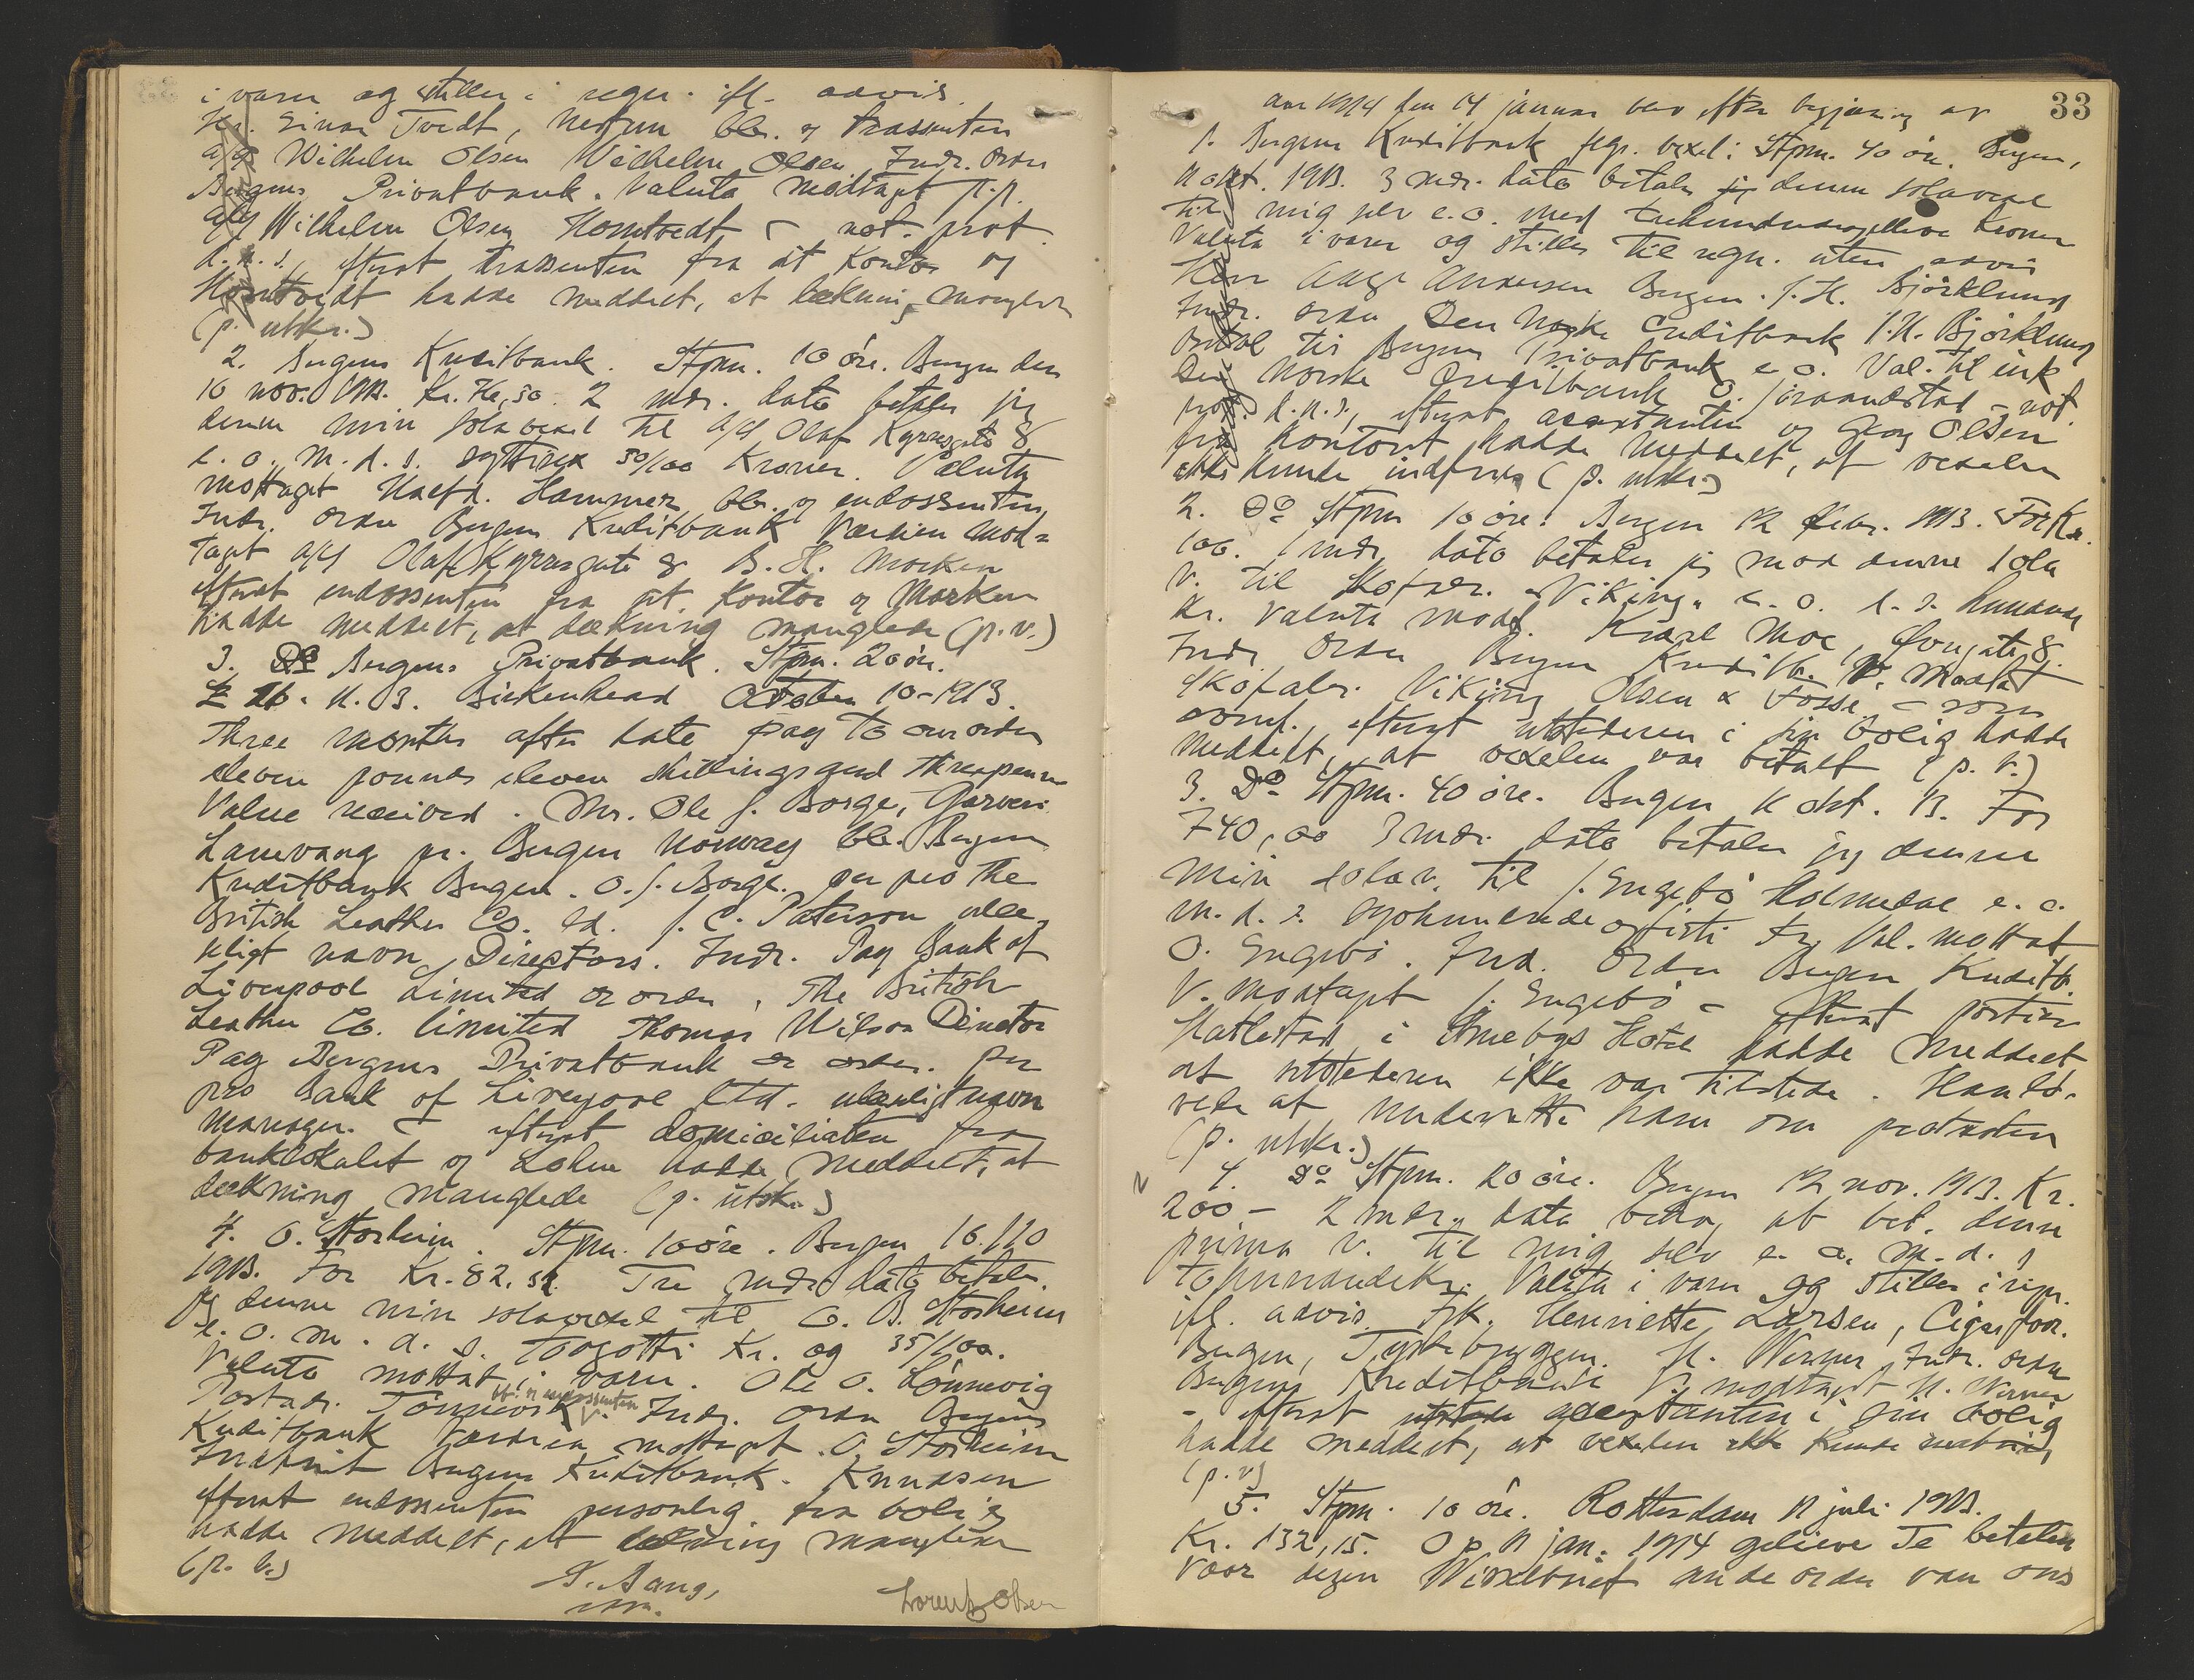 i varer og stilles i regn. ifl. advis.
Hr. Einar Tvedt, Nestun bb. og trassenten
a/s Wilhelm Olsen Wilhelm Olsen Indr. Ordre
Bergens Privatbank. Valuta modtaget p.p.
a/s Wilhelm Olsen Homtvedt – not. prot.
d.n.s., efterat trassenten fra sit Kontor og
Homtvedt hadde meddelt, at dækning manglede
(p. utskr.)
2. Bergens Kreditbank. Stpm. 10 öre. Bergen den
10 nov. 1913. Kr. 76,50. 2 mdr. dato betaler jeg
denne min solavexel til a/s Olaf Kyrresgate 8
e. o. m. d. s. syttisex 50/100 Kroner. Valuta
mottaget Hammer bb. og endossenten,
Indr. Ordre Bergens Kreditbank Værdien mod=
taget a/s Olaf Kyrresgate 8 B. H. Morken
efterat endossenten fra sit Kontor og Morken
hadde meddelt, at dækning manglede (p. v.)
3. Bergens Privatbank. Stpm. 20 öre.
£ 11. 11. 3. Birkenhead October 10-1913.
Three months after date pay to our order
eleven pounds eleven shillings and threepence
Value received. Mr. Ole J. Borge, Garveri
Laxevaag pr. Bergen Norway bb. Bergens
Kreditbank Bergen. O. J. Borge. per pro The
British Leather Co. Ld. J. C. Paterson ulæ-
seligt navn Directors. Indr. Pay Bank of
Liverpool Limited or order, The British
Leather Co. limited Thomas Wilson Director
Pay Bergens Privatbank or order. per
pro Bank of Liverpool Ltd. ulæseligt navn
manager. – efterat domiciliaten fra
banklokalet og Lohne hadde meddelt, at
dækning manglede (p. utskr.)
4. O. Storheim. Stpm. 10 öre. Bergen 16/10
1913. For Kr. 82.35. Tre mdr. dato betaler
jeg denne min solavexel til O. B. Storheim
e. o. m. d. s. Toogotti Kr. og 35/100.
Valuta mottat i varer. Ole O. Lönnevig
bb. og endossenten
Postadr. Indr. Ordre Bergens
Kreditbank Værdien mottaget. O. Storheim
Indfriet Bergens Kreditbank. Knudsen
efterat endossenten personlig fra bolig
hadde meddelt, at dækning manglede
(p. v.)
Lorentz Olsen
33
Aar 1914 den 14 januar blev efter begjæring av
1. Bergens Kreditbank flgr. vexel: Stpm. 40 öre. Bergen,
11 okt. 1913. 3 mdr. dato betales denne solavexel
til mig selv e. o. med Kroner
Valuta i varer og stilles til regn. uten advis
Herr Aage Andersen Bergen. J. H. Björklund
Indr. Ordre Den Norske Creditbank J. H. Björklund
Betal til Bergens Privatbank e. o. Val. til ink.
Den Norske Creditbank O. – not.
prot. d.n.s., efterat acceptanten og Georg Olsen
fra Kontoret hadde meddelt, at vexelen
ikke kunde indfries (p. utskr.)
2. Do Stpm 10 öre: Bergen 12 1913. For Kr.
100. 1 mdr. dato betaler jeg mod denne sola
v. til Skofabr. "Viking" e. o. d. s. hundrede
Kr. Valuta modt. Karl Moe, Övregate 8.
Indr. Ordre Bergens Kreditb. V. Modtat
Skofabr. Viking Olsen & Fosse – som
ovenf., efterat utstederen i sin bolig hadde
meddelt, at vexelen var betalt (p. v.)
3. Do Stpm. 40 öre. Bergen 11 okt. 13. For
740,00 3 mdr. dato betaler jeg denne
min solav. til J. Engebö Holmedal e. o.
m. d. s. syvhundrede og firti kr. Val. mottat
O. Engebö. Ind. Ordre Bergens Kreditb.
V. modtaget J. Engebö – efterat portier
Hatlestad i Hotel hadde meddelt
at utstederen ikke var tilstede. Han lo-
vede at underrette ham om protesten
(p. utskr.)
4. Do Stpm. 20 öre. Bergen 12 nov. 1913. Kr.
200 – 2 mdr. dato behag at bet. denne
prima v. til mig selv e. o. m. d. s
tohundrede Kr. Valuta i varer og stilles i regn.
ifl. advis. Frk. Henriette Larsen, Cigarforr.
Bergen, Tyskebryggen. H. Werner Indr. Ordre
Bergens Kreditbank V. modtaget H. Werner
– efterat acceptanten i sin bolig
hadde meddelt, at vexelen ikke kunde
(p. v.)
5. Stpm. 10 öre. Rotterdam 11 juli 1913.
Kr. 132,15. Op 11 jan. 1914 gelieve Te betalen
voor dezen Wisselbrief ande order van ons